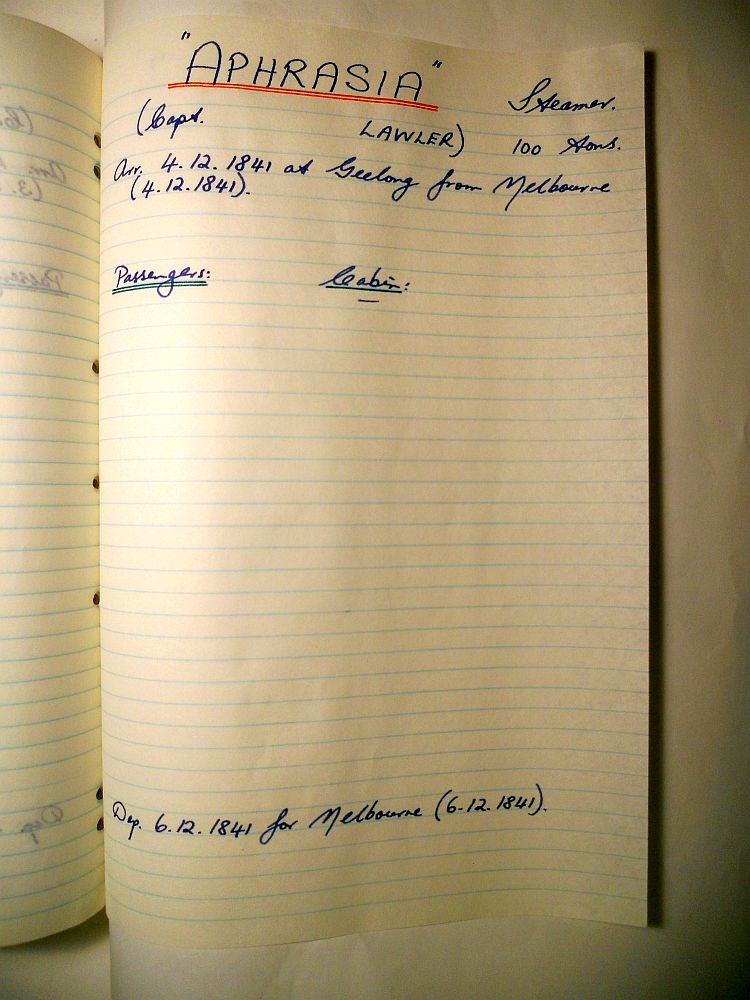 "APHRASIA" Steamer.
(Capt. LAWLER) 100 tons.
Arr. 4.12.1841 at Geelong from Melbourne
(4.12.1841).
Passengers: Cabin:
—
Dep. 6.12.1841 for Melbourne (6.12.1841).